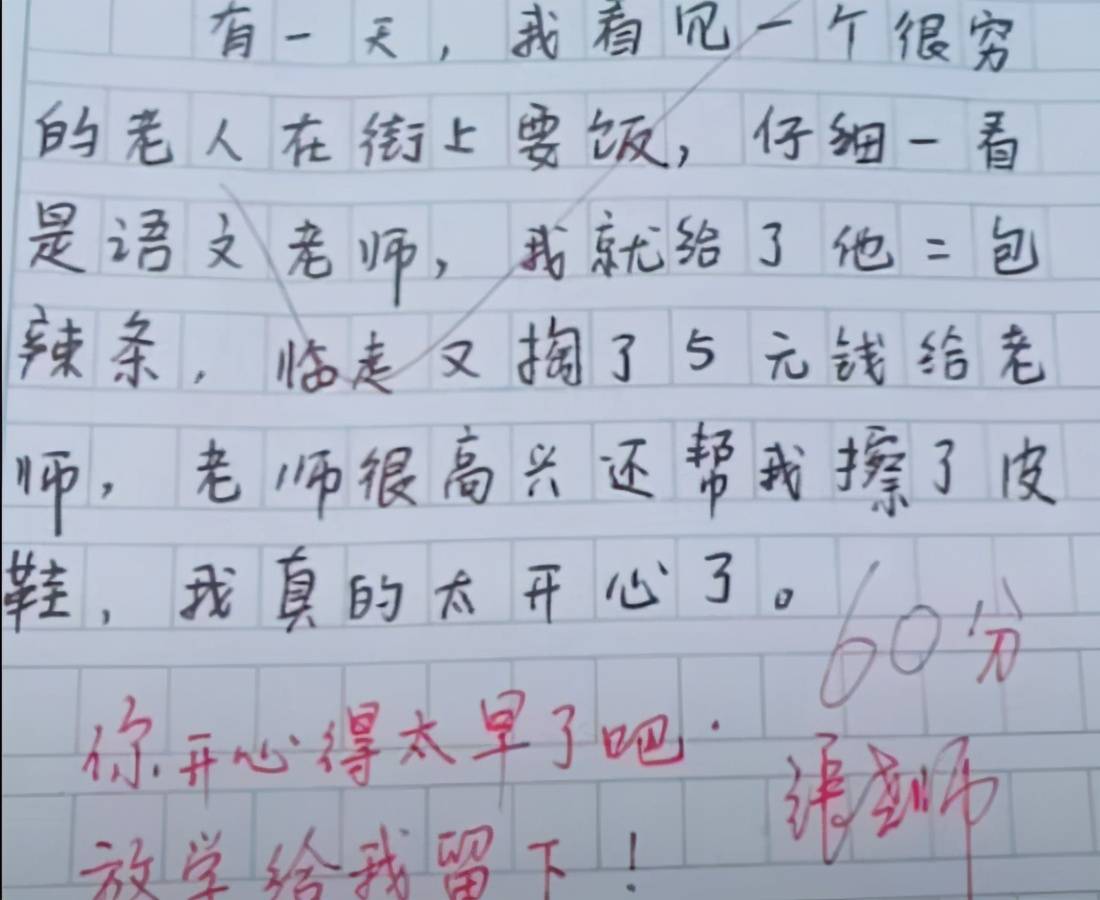 有一天，我看见一个很穷
的老人在街上要饭，仔细一看
是语文老师，我就给了他二包
辣条，临走又掏了5元钱给老
师，老师很高兴还帮我擦了皮
鞋，我真的太开心了。
60分
你开心得太早了吧．
张老师
放学给我留下！